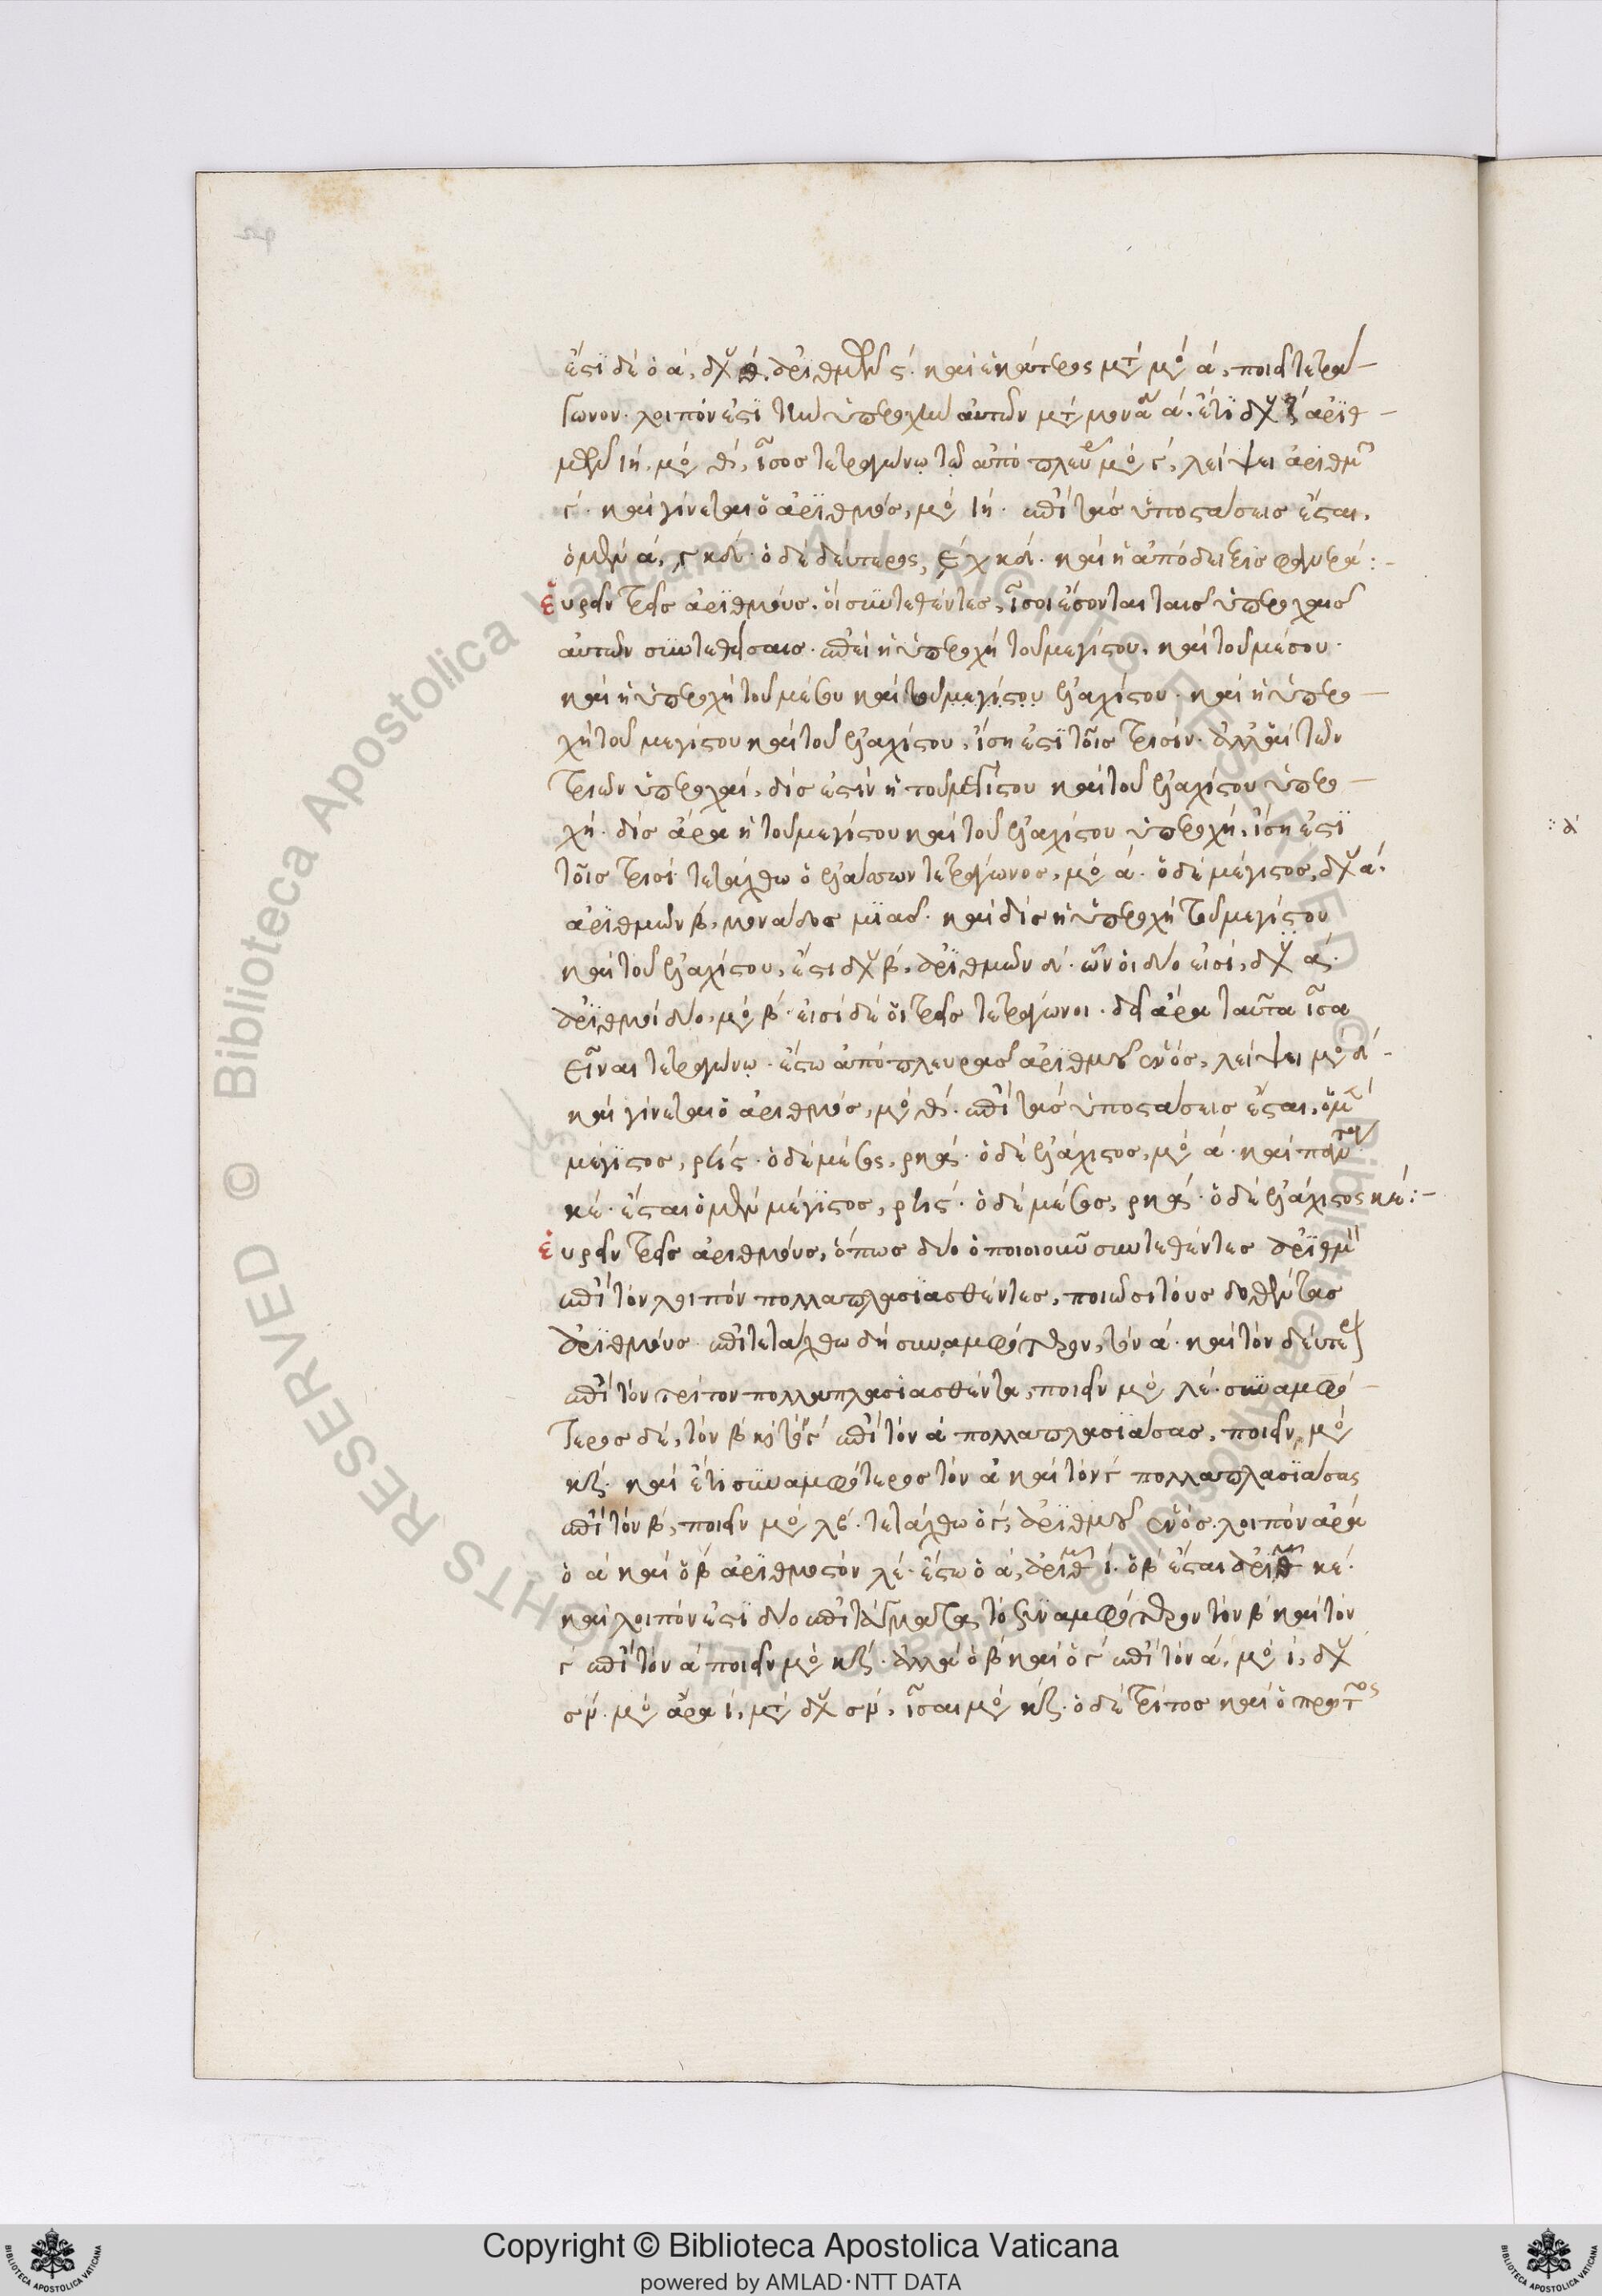 ἔστι δὲ ὁ α´, δυ θ´. ἀριθμῶν ϛ´. καὶ ἑκάτερος μετ μο α´, ποιεῖ τετρά-
γωνον. λοιπόν ἐστι τὴν ὑπεροχὴν αὐτῶν μετ μονάδ α´. ἔτι δυ ἀριθ-
μῶν ιή, μο θ´, ἴσος τετραγώνω τῶ ἀπὸ πλευρ μο γ´, λείψει ἀριθμ
ϛ´. καὶ γίνεται ὁ ἀριθμός, μο ιή. ἐπὶ τὰς ὑποστάσεις ἔσται,
ὁ μὲν α´, γ κδ´. ὁ δὲ δεύτερος, ε χ κδ´. καὶ ἡ ἀπόδειξις φανερά :-
εὑρεῖν τρεῖς ἀριθμούς. οἱ συντεθέντες, ἴσοι ἔσονται ταῖς ὑπεροχαῖς
αὐτῶν συντεθείσαις. ἐπεὶ ἡ ὑπεροχὴ τοῦ μεγίστου, καὶ τοῦ μέσου.
καὶ ἡ ὑπεροχὴ τοῦ μέσου καὶ τοῦ μεγίστου ἐλαχίστου. καὶ ἡ ὑπερο-
χὴ τοῦ μεγίστου καὶ τοῦ ἐλαχίστου, ἴση ἐστὶ τοῖς τρισίν. ἀλλ' αἱ τῶν
τριῶν ὑπεροχαί, δίς ἐστιν ἡ τοῦ μεγίστου καὶ τοῦ ἐλαχίστου ὑπερο-
χή. δὶς ἄρα ἡ τοῦ μεγίστου καὶ τοῦ ἐλαχίστου ὑπεροχή, ἴση ἐστὶ
τοῖς τρισί. τετάχθω ὁ ἐλάσσων τετράγωνος, μο α´. ὁ δὲ μέγιστος, δυ α´.
ἀριθμῶν β, μονάδος μιᾶς. καὶ δὶς ἡ ὑπεροχὴ τοῦ μεγίστου
καὶ τοῦ ἐλαχίστου, ἔστι δυ β, ἀριθμῶν δ´. ὧν οἱ δύο εἰσί, δυ α´.
ἀριθμοὶ δύο, μο β´. εἰσὶ δὲ οἱ τρεῖς τετράγωνοι. δεῖ ἄρα ταῦτα ἴσα
εἶναι τετραγώνω. ἔστω ἀπὸ πλευρᾶς ἀριθμοῦ ἑνός, λείψει μο δ´-
καὶ γίνεται ὁ ἀριθμός, μο θ´. ἐπὶ τὰς ὑποστάσεις ἔσται, ὁ μ
μέγιστος, ρϟϛ´. ὁ δὲ μέσος, ρκά. ὁ δὲ ἐλάχιστος, μο α´. καὶ πάντ
κέ. ἔσται ὁ μὲν μέγιστος, ρϟϛ´. ὁ δὲ μέσος, ρκά. ὁ δὲ ἐλάχιστος κέ :-
εὑρεῖν τρεῖς ἀριθμούς, ὅπως δύο ὁποιοιοῦν συντεθέντες ἀριθμ
ἐπὶ τὸν λοιπὸν πολλαπλασιασθέντες, ποιῶσι τοὺς δοθέντας
ἀριθμούς. ἐπιτετάχθω δὴ συναμφότερον, τὸν α´. καὶ τὸν δεύτερ
ἐπὶ τὸν τρίτον πολλαπλασιασθέντα, ποιεῖν μο λέ. συναμφό-
τερος δέ, τὸν β κ τὸν γ´ ἐπὶ τὸν α´ πολλαπλασιάσας, ποιεῖν, μο
κζ. καὶ ἔτι συναμφότερος τὸν α´ καὶ τὸν γ´ πολλαπλασιάσας
ἐπὶ τὸν β, ποιεῖν μο λβ. τετάχθω ὁ γ´, ἀριθμοῦ ἑνός. λοιπὸν ἄρα
ὁ α´ καὶ ὁ β ἀριθμοστόν λέ. ἔστω ὁ α´, ἀριθ ί. ὁ β´ ἔσται ἀριθ κέ.
καὶ λοιπόν ἐστι δύο ἐπιτάγματα, τὸ συναμφότερον τὸν β´ καὶ τὸν
γ´ ἐπὶ τὸν α´ ποιεῖν μο κζ. ἀλλὰ ὁ β καὶ ὁ γ´ ἐπὶ τὸν α´, μο ί, δυ
σν. μο ἄρα ί, μετ δυ σν, ἴσαι μο κζ. ὁ δὲ τρίτος καὶ ὁ πρῶτος
:· λ
Copyright © Biblioteca Apostolica Vaticana
powered by AMLAD·NTT DATA